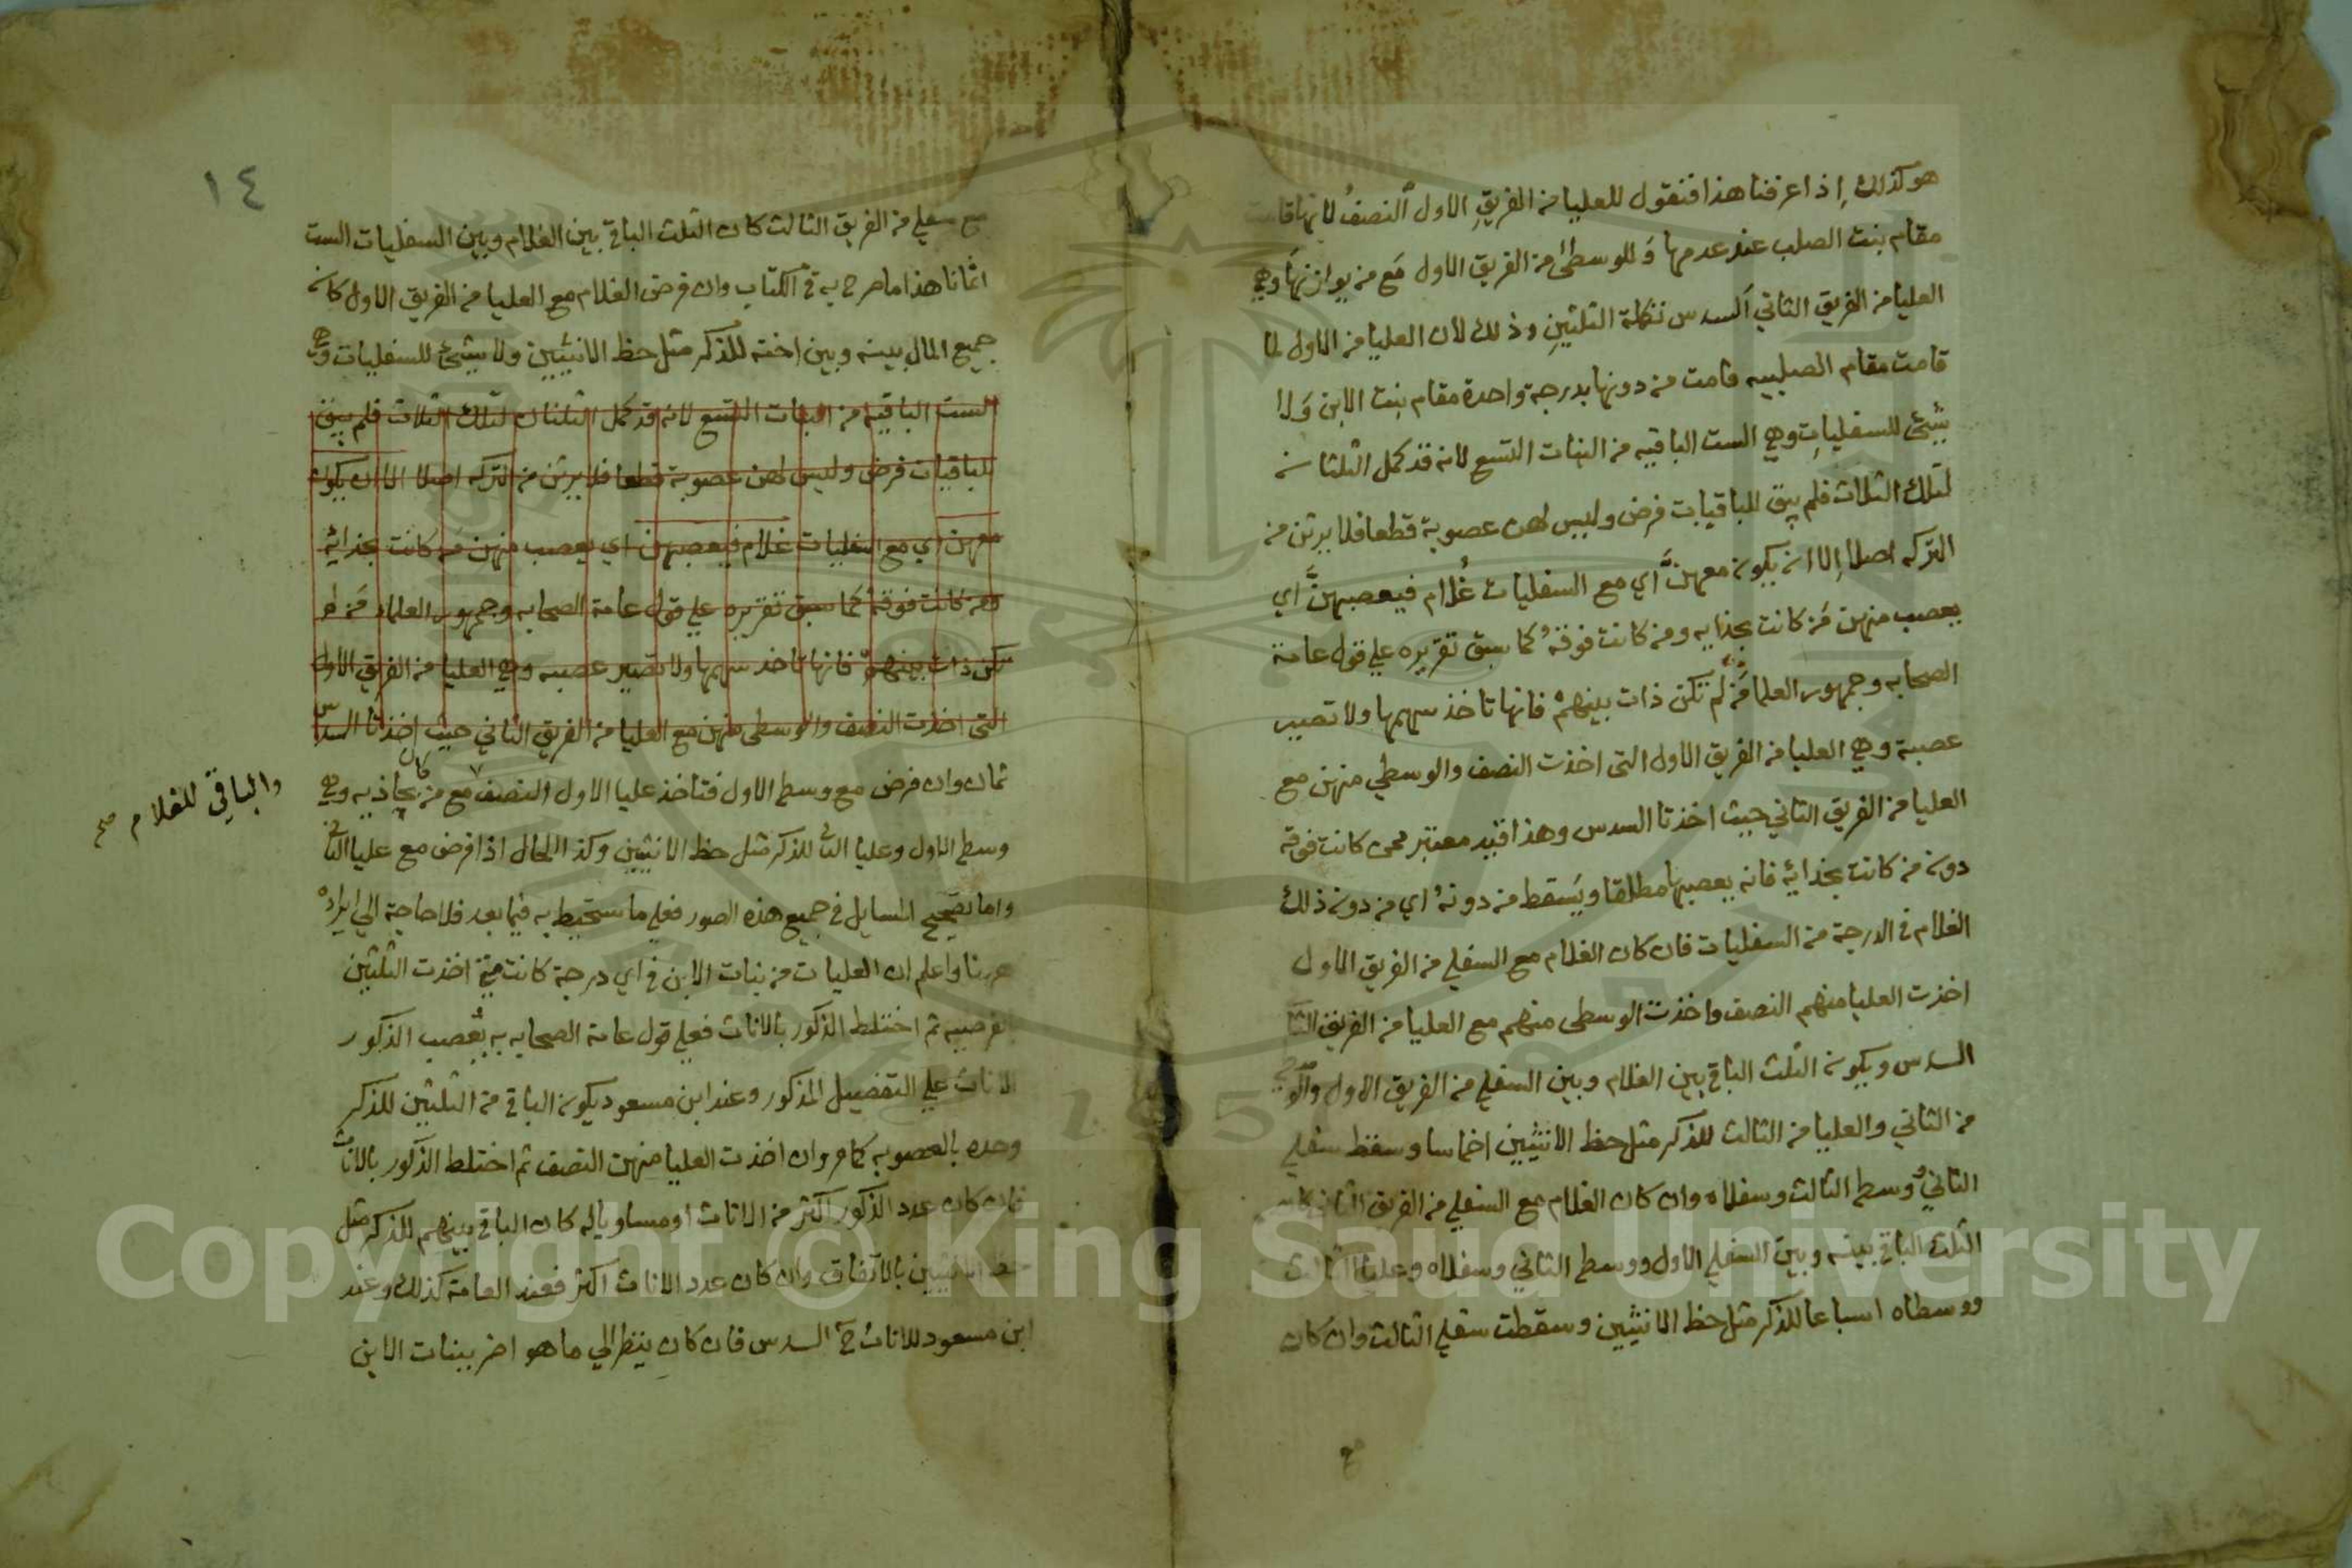 هو كذلك إذا عرفنا هذا فنقول للعليا من الفريق الاول النصف لانها قامت
مقام بنت الصلب عند عدمها وللوسطى من الفريق الاول مع من يوازنها وهي
العليا من الفريق الثاني السدس تكملة الثلثين وذلك لان العليا من الاول لما
قامت مقام الصلبيه قامت من دونها بدرجة واحدة مقام بنت الابن ولا
شيئ للسفليات وهي الست الباقيه من البنات التسع لانه قد كمل الثلثان
لتلك الثلاث فلم يبق للباقيات فرض وليس لهن عصوبة قطعا فلا يرثن من
التركه اصلا إلا ان يكون معهن أي مع السفليات غلام فيعصبهن أي
يعصب منهن من كانت بحذايه ومن كانت فوقه كما سبق تقريره علي قول عامة
الصحابه وجمهور العلما من لم تكن ذات بينهم فانها تاخذ سهمها ولا تصير
عصبة وهي العليا من الفريق الاول التى اخذت النصف والوسطي منهن مع
العليا من الفريق الثاني حيث اخذتا السدس وهذا قيد معتبر ممن كانت فوقه
دون من كانت بحذائه فانه يعصبها مطلقا ويسقط من دونه اي من دون ذلك
الغلام في الدرجة من السفليات فان كان الغلام مع السفلي من الفريق الاول
اخذت العليا منهم النصف واخذت الوسطى منهم مع العليا من الفريق الثا
السدس ويكون الثلث الباقي بين الغلام وبين السفلي من الفريق الاول
من الثاني والعليا من الثالث للذكر مثل حظ الانثيين اخماسا وسقط سفلي
الثاني ووسطي الثالث وسفلاه وان كان الغلام مع السفلي من الفريق الثاني كان
الثلث الباقي بينه وبين السفلي الاول ووسطي الثاني وسفلاه وعليا الثالث
ووسطاه اسباعا للذكر مثل حظ الانثيين وسقطت سفلي الثالث وان كان
١٤
مع سفلي من الفريق الثالث كان الثلث الباقي بين الغلام وبين السفليات الست
اثمانا هذا ما صرح به في الكتاب وان فرض الغلام مع العليا من الفريق الاول كان
جميع المال بينه وبين اخته للذكر مثل حظ الانثيين ولا شيئ للسفليات وهي
الست الباقيه من البنات التسع لانه قد كمل الثلثان لتلك الثلاث فلم يبق
للباقيات فرض وليس لهن عصوبة قطعا فلا يرثن من التركه اصلا الا ان يكون
معهن اي مع السفليات غلام فيعصبهن اي يعصب منهن من كانت بحذائه
ومن كانت فوقه كما سبق تقريره علي قول عامة الصحابه وجمهور العلماء من لم
تكن ذات بينهم فانها تاخذ سهمها ولا تصير عصبه وهي العليا من الفريق الاول
التى اخذت النصف والوسطى منهن مع العليا من الفريق الثاني حيث اخذتا السدس
ثمان وان فرض مع وسطي الاول فتاخذ عليا الاول النصف مع من كان يحاذيه وهي
والباقي للغلام صح
وسطي الاول وعليا الثاني للذكر مثل حظ الانثيين وكذا الحال اذا فرض مع عليا الثاني
واما تصحيح المسايل في جميع هذه الصور فعلي ما ستحيط به فيما بعد فلا حاجة الي ايراده
هربنا واعلم ان العليات من بنات الابن في اي درجة كانت اخذت الثلثين
بالفرضيه ثم اختلط الذكور بالاناث فعلي قول عامة الصحابه يعصب الذكور
الاناث علي التفصيل المذكور وعند ابن مسعود يكون الباقي من الثلثين للذكر
وحده بالعصوبه كما مر وان اخذت العليا منهن النصف ثم اختلط الذكور بالاناث
فان كان عدد الذكور اكثر من الاناث او مساويا له كان الباقي بينهم للذكر مثل
حظ الانثيين بالاتفاق وان كان عدد الاناث اكثر فعند العامة كذلك وعند
ابن مسعود للاناث ح السدس فان كان ينظر الي ما هو اضر ببنات الابن
Copyright © King Saud University